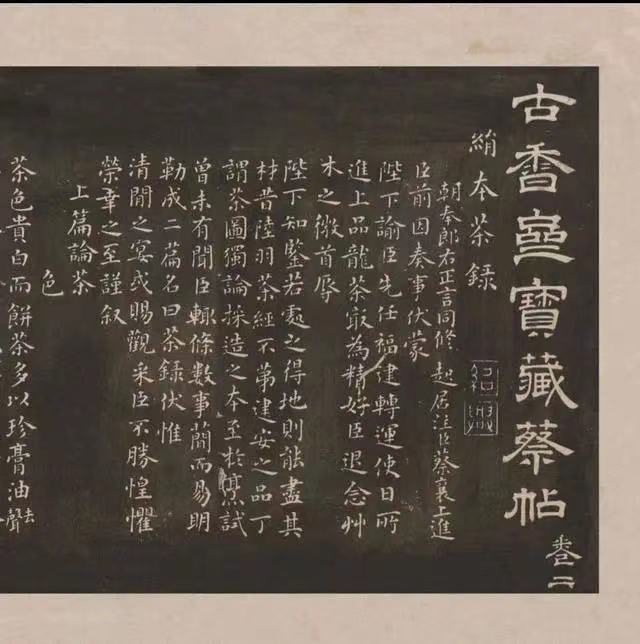 古香齋寶藏蔡帖
卷二
絹本茶錄
朝奉郎右正言同修起居注臣蔡襄上進
臣前因奏事伏蒙
陛下諭臣先任福建轉運使日所
進上品龍茶最為精好臣退念艸
木之微首辱
陛下知鑒若處之得地則能盡其
材昔陸羽茶經不第建安之品丁
謂茶圖獨論採造之本至於烹試
曾未有聞臣輒條數事簡而易明
勒成二篇名曰茶錄伏惟
清閒之宴或賜觀采臣不勝惶懼
榮幸之至謹叙
上篇論茶
色
茶色貴白而餅茶多以珍膏油